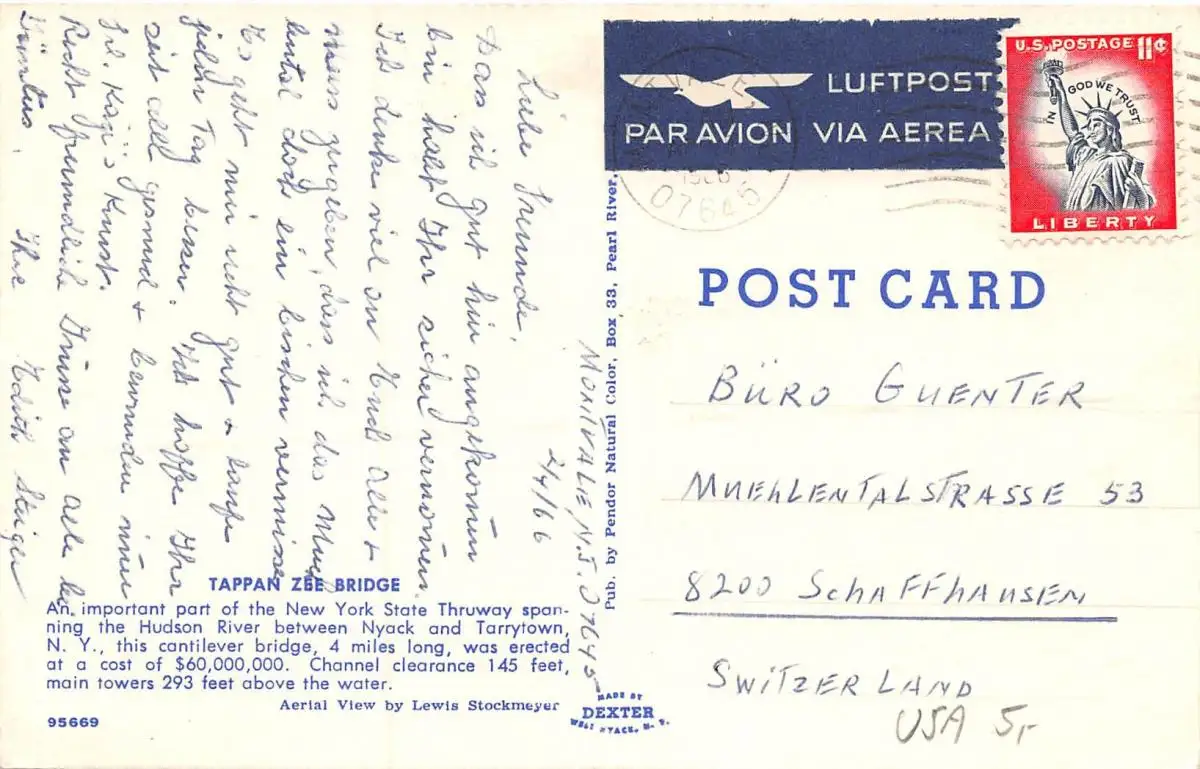 LUFTPOST
PAR AVION VIA AEREA
07645
U.S. POSTAGE 11¢
IN GOD WE TRUST
LIBERTY
POST CARD
BÜRO GUENTER
MUEHLENTALSTRASSE 53
8200 SCHAFFHAUSEN
SWITZERLAND
USA 5,-
MONTVALE, N.J. 07645
2/4/66
Liebe Freunde,
Dass ich gut hier angekom̅en
bin habt Ihr sicher vernom̅en.
Ich denke viel an Euch alle +
muss zugeben, dass ich das
lental doch ein bischen vermisse
Es geht mir recht gut + laufe
jeden Tag besser. Ich hoffe Ihr
seid all gesund + bewundern
Frl. Kägi's Kunst.
Recht freundliche Grüsse an alle
Ihre Edith Steiger
Pub. by Pendor Natural Color, Box 33, Pearl River,
TAPPAN ZEE BRIDGE
An important part of the New York State Thruway span-
ning the Hudson River between Nyack and Tarrytown,
N. Y., this cantilever bridge, 4 miles long, was erected
at a cost of $60,000,000. Channel clearance 145 feet,
main towers 293 feet above the water.
Aerial View by Lewis Stockmeyer
95669
MADE BY
DEXTER
WEST NYACK, N. Y.